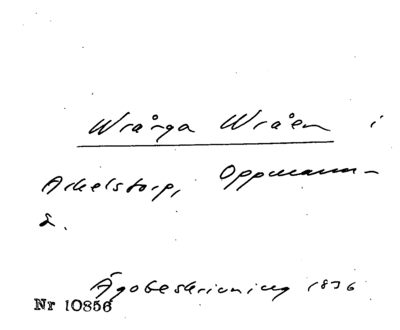 Wrånga Wråen i
Arkelstorp, Oppmann-
a.
Ägobeskrivning 1836
Nr 10856